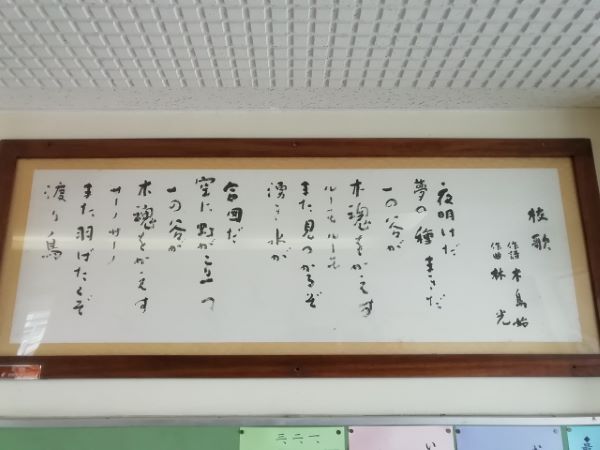 校歌
作詩 木島始
作曲 林光
夜明けだ
夢の種まきだ
一の谷が
木魂をかえす
また見つかるぞ
湧き水が
合図だ
空に
一の谷が
木魂をかえす
サーノサーノ
また羽ばたくぞ
渡り鳥
一、
二、
三、
い